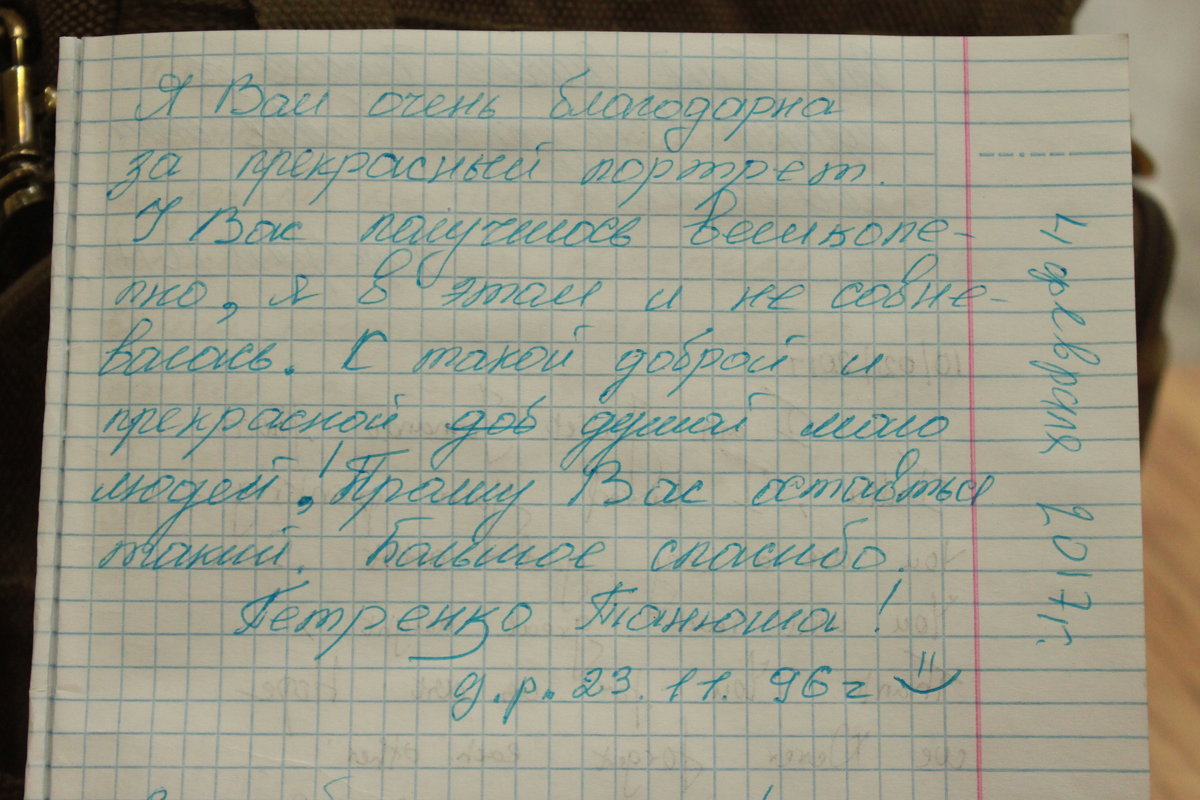 Я Вам очень благодарна
за прекрасный портрет.
У Вас получилось великоле-
пно, я в этом и не совне-
валась. С такой доброй и
прекрасной доб душой мало
людей! Прошу Вас оставться
такий. Большое спасибо.
Петренко Танюша!
д.р. 23.11.96г
4 февраля 2017г.